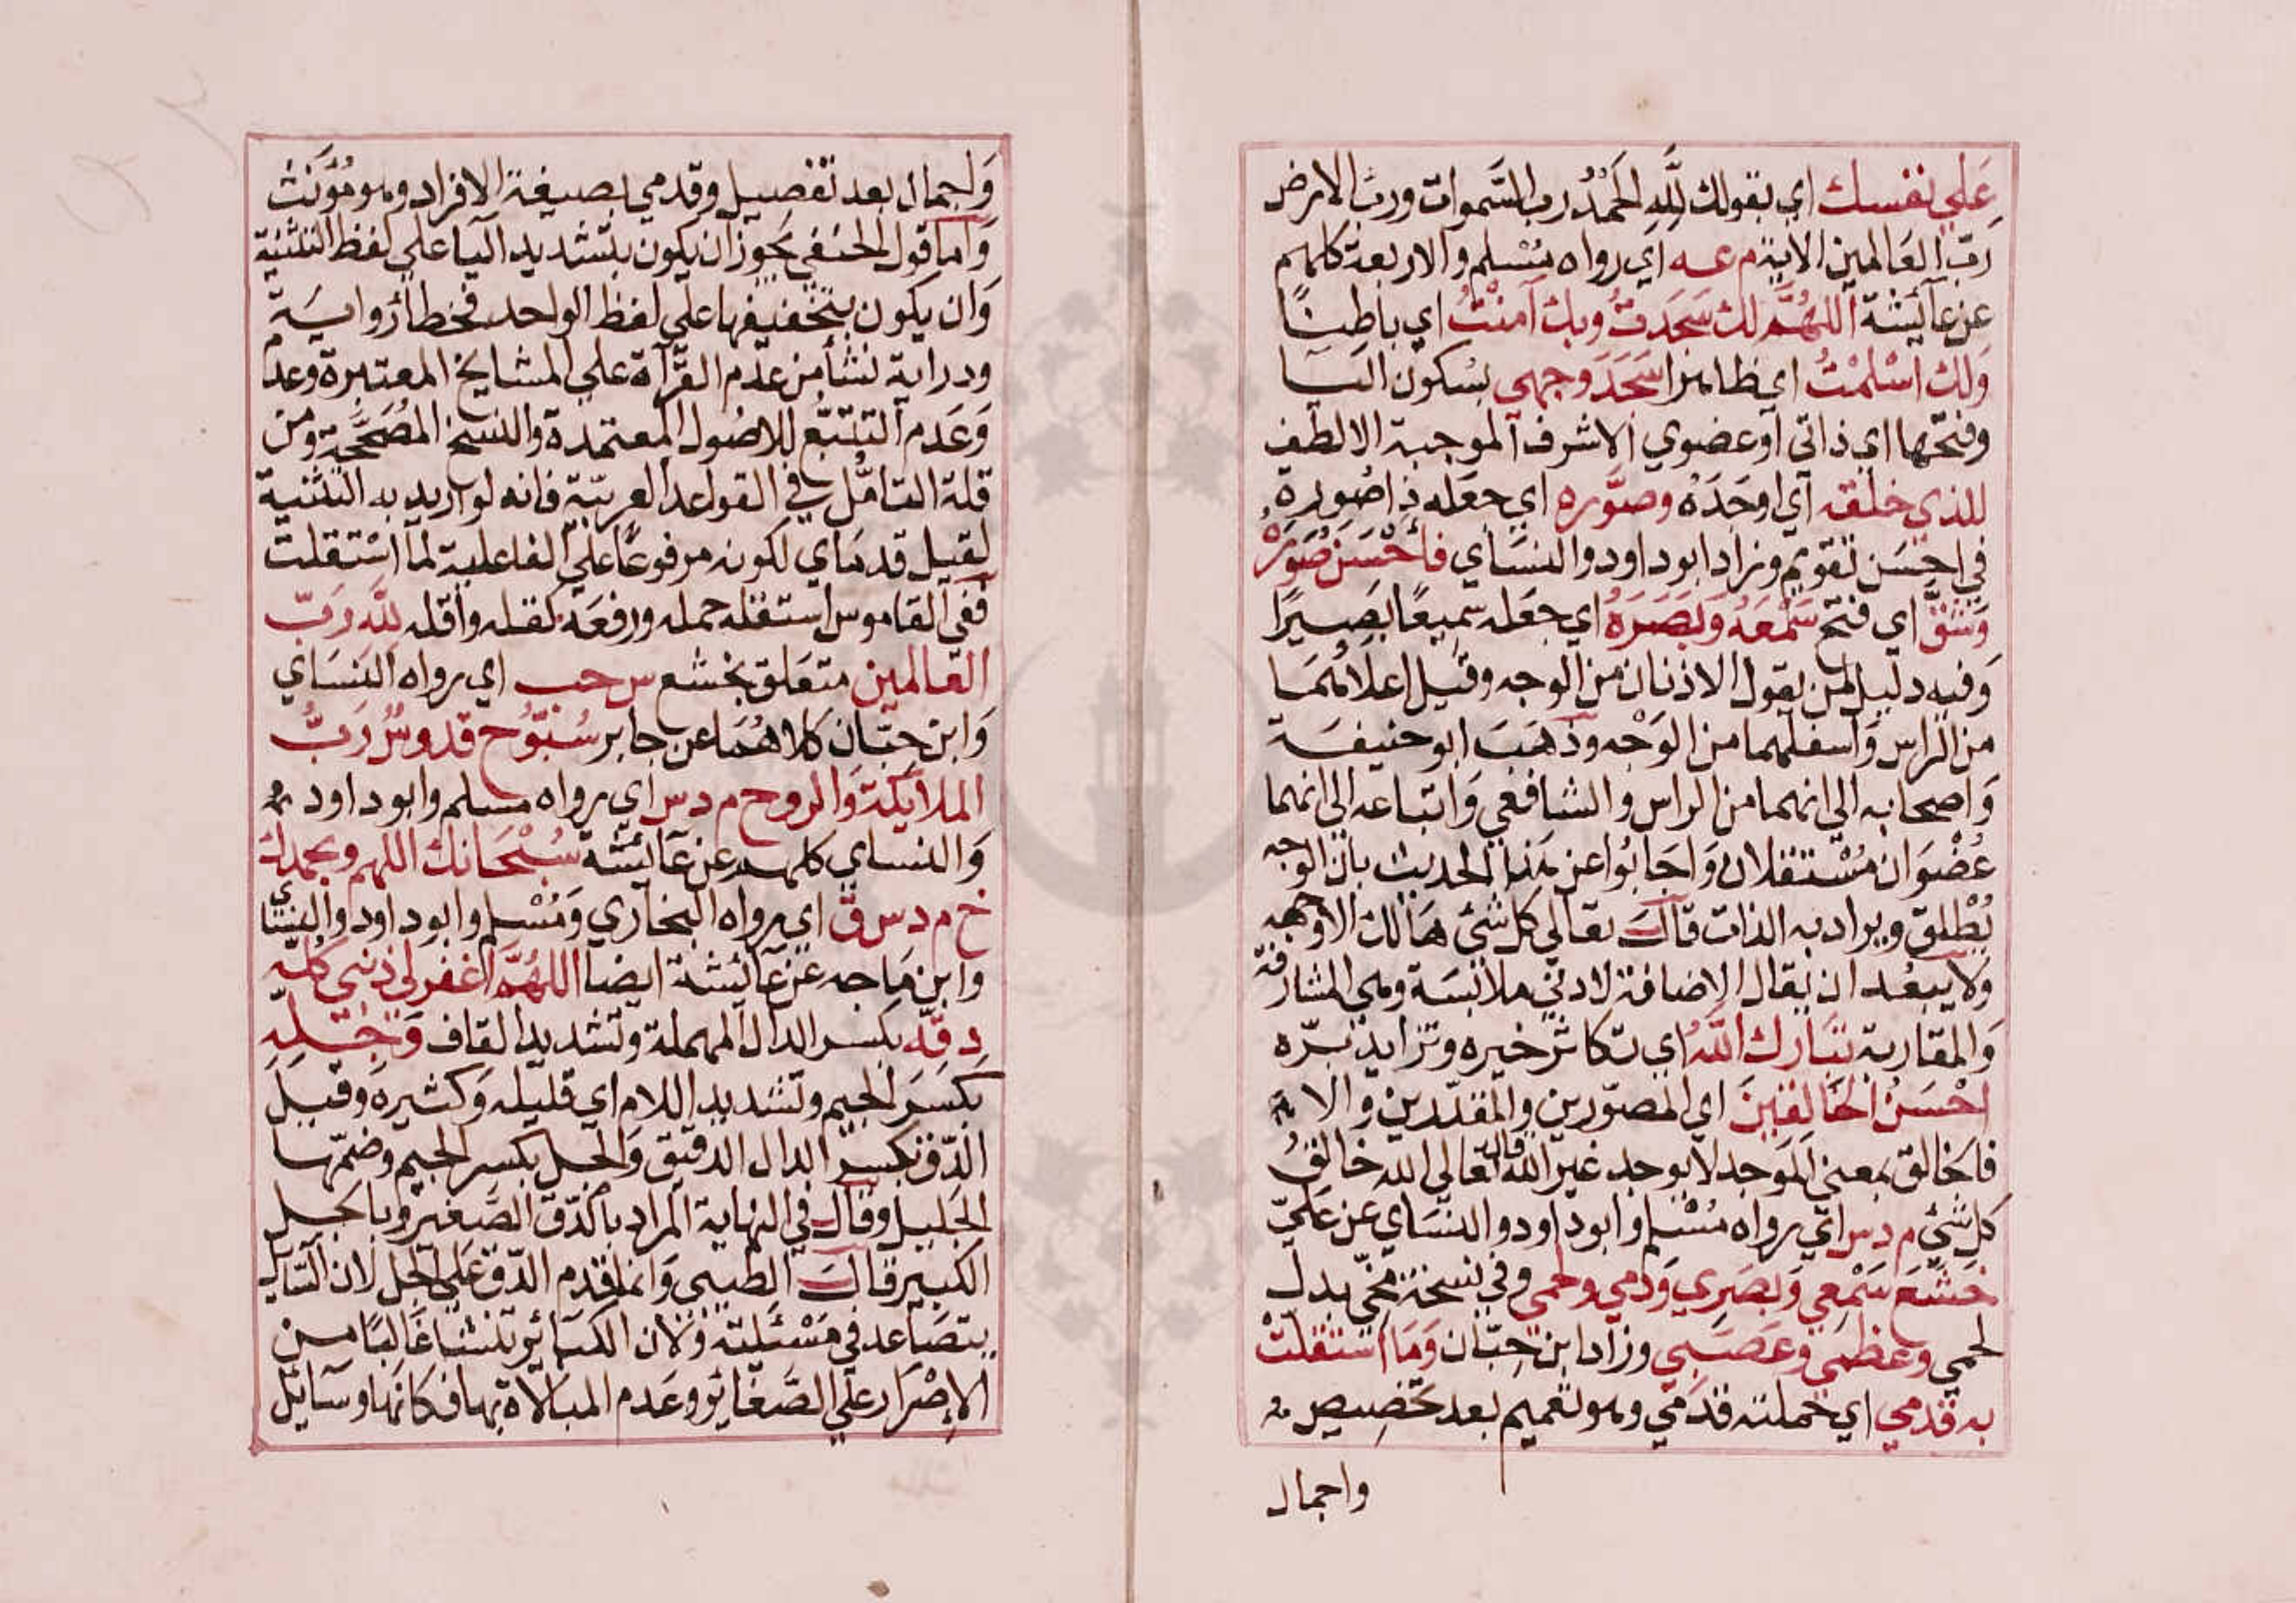 عَلي نفسك اي بقولك لِلَّهِ الحَمْدُ رب السَّموات ورب الارض
رَبّ العَالمين الاية م عه اي رواه مُسْلم والاربعة كلهم
عن عآئشة اللهُمَّ لك سَجَدتُ وبك آمنْتُ اي باطنًا
وَلك اسْلمْتُ اي ظاهرا سَجَدَ وَجهى بسكون اليا
وفتحها اي ذاتى أوعضوي الاشرف الموجبة الالطف
للذي خلقه آي اوجَدَهُ وصوَّره اي جعَله ذا صُورة
في احسَن تقويم وزاد ابو داود والنسَاي فأحْسَنَ صُوَرَهُ
وَشقَّ اي فتح سَمْعَهُ وَبَصَرَهُ اي جعَله سميعًا بَصيرًا
وَفيه دليل لمن يقول الاذنان من الوجه وقيل اعلاهُمَا
من الرّاس وَأسفلهما من الوَجْه وذهَبَ ابو حنيفة
وَاصحابه الي انهما من الراس والشافعي وَاتباعه الى انهما
عُضْوَان مُسْتقلان وَاجَابُوا عن هَذا الحديث بان الوجه
يُطْلق ويراد به الذات قالَ تعَالي كل شئ هَالك الا وجهه
وَلا يبعُد ان يقال الاضافة لادني ملابَسَة وهي المشارفة
وَالمقاربة تبَارك اللهُ اي تكاثر خيره وتزايد برّه
احْسَنُ الخَالقينَ اي المصَوّرين والمقدّرين والا
فالخالق بمعني المَوجد لا يوجد غير الله قال تعَالي الله خالقُ
كل شئ م دس اي رواه مُسْلم وابو داود والنسَاي عن عَليّ
خَشَعَ سَمْعي وَبصَري وَدمي ولحمى وفي نسخة مخّي بدل
لحمي وعَظمى وعَصَبِي وزاد ابن حِبّان وَمَا اسْتقلتْ
به قدمي اي حملته قدَمي وهو تعميم بعد تخصيص
واجمال
وَاجمال بعد تفصيل وقدمي بصيغة الافراد وهو مُؤنث
وَاما قول الحنفي يَجوز ان يكون بتشديد اليا علي لفظ التثنية
وَان يكون بتخفيفها علي لفظ الواحد فخطا رواية
ودراية نشأ من عدم القرَّآة علي المشايخ المعتبرة وعدم
وَعَدم التتبّع للاصُول المعتمدة والنسخ المُصَحَّحة ومن
قلة التامُّل في القواعد العربيّة فانه لو اريد به التثنية
لقيل قدمَاي لكونه مرفوعًا علي الفاعلية لما اسْتقلت
ففي القاموس استقله حمله ورفعَه كقله وأقله للّه رَبّ
العَالمين متعَلق بخشع س حب اي رواه النسَاي
وَابن حبّان كلاهُمَا عن جابر سُبّوُح قدوسٌ رَبُّ
الملآيكة وَالروح م دس اي رواه مسلم وابو داود
وَالنساي كلهم عن عَآئشة سُبْحَانك اللهم وبحمدك
خ م دس ق اي رواه البخاري وَمُسْلم وابو داود والنسَّاي
وابن مَاجه عن عآئشة ايضا اللهُمَّ اغفر لي ذنبي كلّه
دِقَّه بكسر الدال المهملة وتشديد القاف وَجِلّهِ
بكسر الجيم وتشديد اللام اي قليله وَكثيره وَقيلَ
الدّق بكسر الدال الدقيق وَالجل بكسر الجيم وضمّها
الجَليل وقالَ في النهاية المراد بالدّق الصَّغير وبالجل
الكبير قالَ الطيبى وَانما قدم الدّق عَلى الجل لان السّايل
يتصَاعد في مَسْئلته وَلان الكبَائر تنشأ غَالبًا من
الاِصْرَار علي الصَّغائر وعَدم المبَالاة بها فكانها وسَآئل